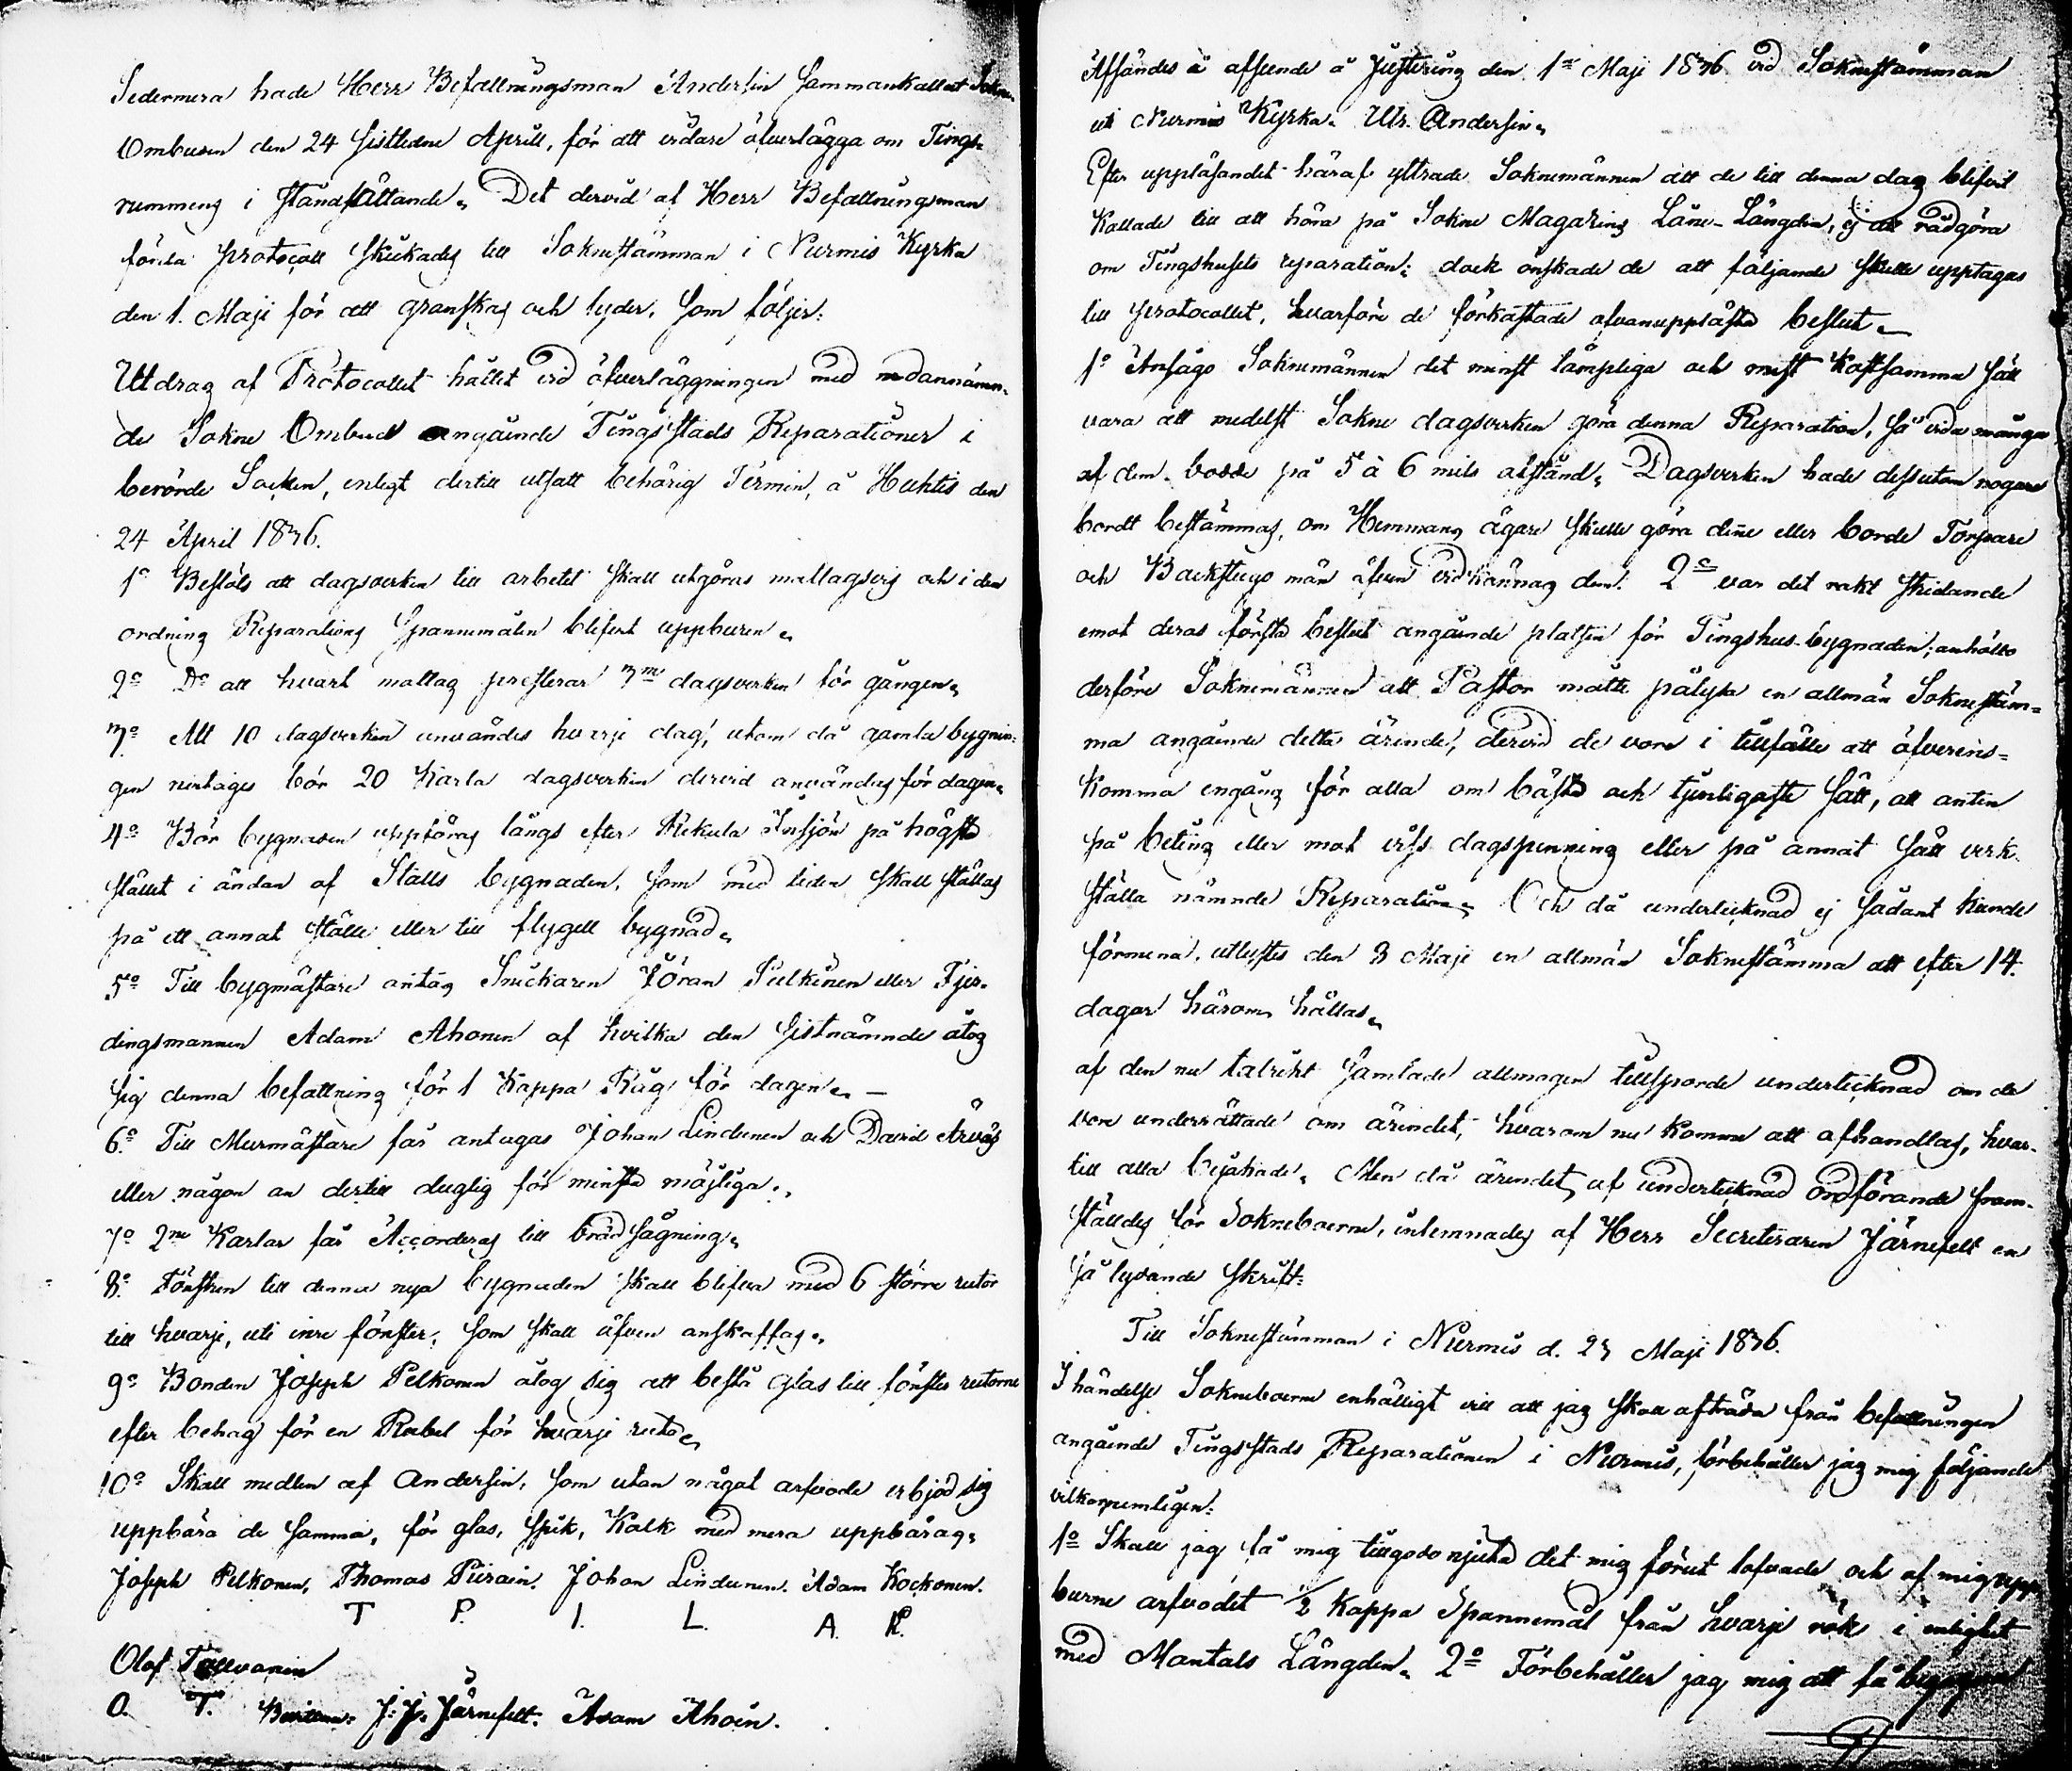 Sedermera hade Herr Befallningsman Andersin sammankallat Sokne
Ombuden den 24 sistledne Aprill, för att vidare öfverlägga om Tings-
rummens i ståndsättande. Det dervid af Herr Befallningsman
förda protocoll skickades till Soknestämman i Nurmis Kyrka
den 1. Maji för att granskas och lyder, som följer:
Utdrag af Protocollet hållet vid öfverläggningen med nedannämn-
de Sokne Ombud angående Tingsstads Reparationer i
berörde Socken, enligt dertill utsatt behörig Termin, å Huhtis den
24 April 1836.
1o Beslöts att dagsverken till arbetet skall utgöras mattlagsvis och i den
ordning Reparations Spannemålen blifvit uppburen.
2o Do att hvart matlag presterar 3ne dagsverken för gången.
3o Att 10 dagsverken användes hvarje dag, utom då gamla bygnin-
gen nertages bör 20 Karla dagsverken dervid användas för dagen.
4o Bör bygnaden uppföras längs efter Kekula Insjön på högsta
stället i ändan af Stalls bygnaden, som med tiden skall ställas
på ett annat ställe eller till flygell bygnad.
5o Till bygmästare antag Snickaren Jöran Pelkinen eller Fjer-
dingsmannen Adam Ahonen af hvilka den sistnämnde åtog
sig denna befattning för 1 Kappa Råg för dagen. —
6o Till Murmästare får antagas Johan Lindunen och David Arvas
eller någon an dertill duglig för minsta möjliga.
7o 2ne Karlar får Accorderas till brädsågning.
8o Fönstren till denna nya bygnaden skall blifva med 6 större rutor
till hvarje, uti inre fönster, som skall äfven anskaffas.
9o Bonden Joseph Pelkonen åtog sig att bestå glas till fönster rutorne
efter behag för en Rubel för hvarje ruta.
10o Skall medlen af Andersin, som utan något arfvode erbjöd sig
uppbära de samma, för glas, spik, Kalk med mera uppbäras.
Joseph Pelkonen, Thomas Piirain. Johan Lindunen. Adam Kockonen.
T P. I. L. A. K.
Olof Tallvanen
O. T. J: J: Järnefelt. Adam Ahoin.
Afsändes å afseende å Justering den 1ste Maji 1836 vid Soknestämman
uti Nurmis Kyrka. Ulr. Andersin.
Efter uppläsandet häraf yttrade Soknemännen att de till denna dag blifvit
Kallade till att höra på Sokne Magazins Låne-Längden, ej att rådgöra
om Tingshusets reparation; dock önskade de att följande skulle upptagas
till protocollet, hvarföre de förkastade ofvanuppläste beslut. —
1o Ansågo Soknemännen det minst lämpliga och mest kostsamma sätt
vara att medelst Sokne dagsverken göra denna Reparation, så vida många
af dem bodde på 5 à 6 mils afstånd. Dagsverken hade dessutom nogare
bordt bestämmas, om Hemmans ägare skulle göra dene eller borde Torpare
och Backstugo män äfven vidkännas dem. 2o var det rakt stridande
emot deras första beslut angående platsen för Tingshus-bygnaden; anhöllo
derföre Soknemännen att Pastor måtte pålysa en allmän Soknestäm-
ma angående detta ärende, dervid de vore i tillfälle att öfverens-
Komma engång för alla om bästa och tjenligaste sätt, att anten
på beting eller mot viss dagspenning eller på annat sätt verk-
ställa nämnde Reparation. Och då undertecknad ej sådant kunde
förmena, utlystes den 3 Maji en allmän Soknestämma att efter 14.
dagar härom hållas.
af den nu talrikt samlade allmogen tillsporde undertecknad om de
vore underrättade om ärendet, hvarom nu komme att afhandlas, hvar-
till alla bejakade. Men då ärendet af undertecknad ordförande fram-
ställdes för Sokneboerne, inlemnades af Herr Secreteraren Järnefelt en
så lydande skrift:
Till Soknestämman i Nurmis d. 23 Maji 1836.
I händelse Sokneboerne enhälligt vill att jag skall afträda från befattningen
angående Tingsstads Reparationen i Nurmis, förbehåller jag mig följande
vilkor nemligen:
1o Skall jag få mig tillgodo njuta det mig förut lofvade och af mig upp-
burne arfvodet 1/2 Kappa Spannemål från hvarje rök i enlighet
med Mantals Längden. 2o Förbehåller jag mig att få